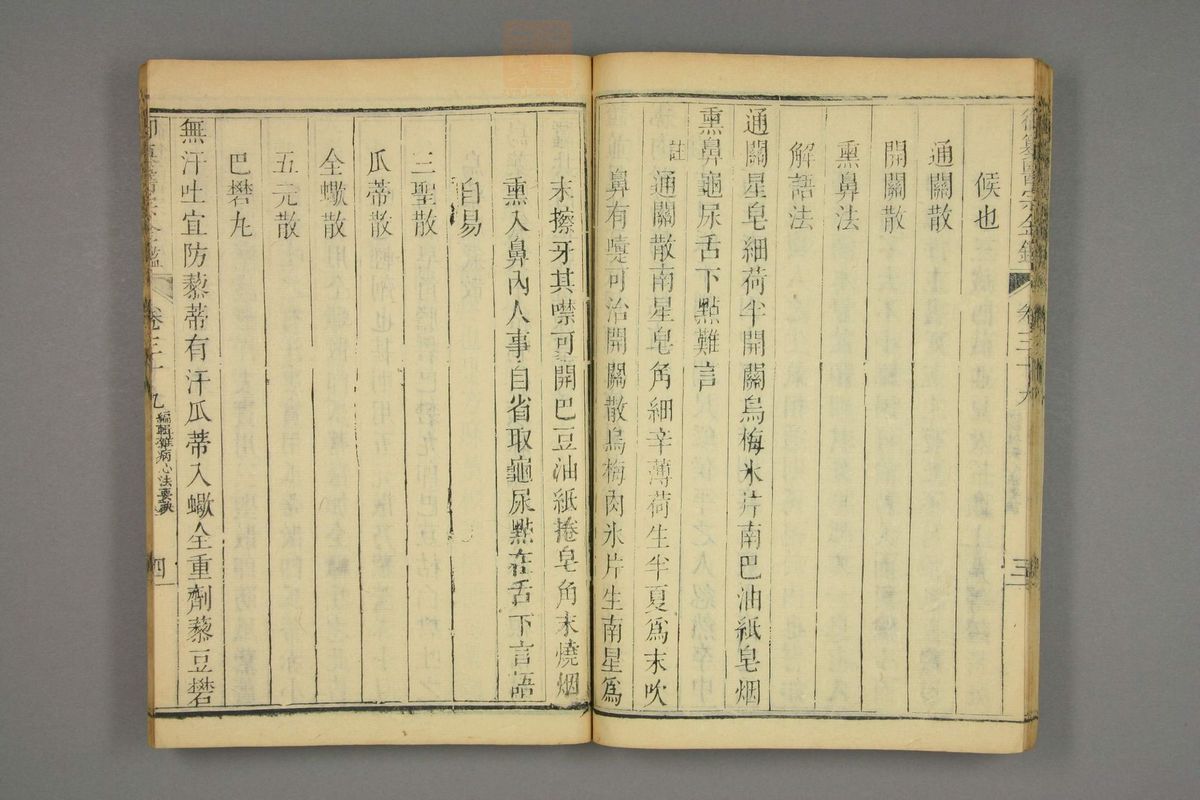 候也
通關散
開關散
熏鼻法
解語法
通關星皂細荷半開關烏梅氷片南巴油紙皂烟
熏鼻龜尿舌下點難言
註 通關散南星皂角細辛薄荷生半夏為末吹
鼻有嚏可治開關散烏梅肉氷片生南星為
末擦牙其噤可開巴豆油紙捲皂角末燒烟
熏入鼻內人事自省取龜尿點在舌下言語
自易
三聖散
瓜蒂散
全蠍散
五元散
巴礬丸
無汗吐宜防藜蒂有汗瓜蒂入蠍全重劑藜豆礬
卷三十九
編輯雜病心法要訣
四
卷三十九
三